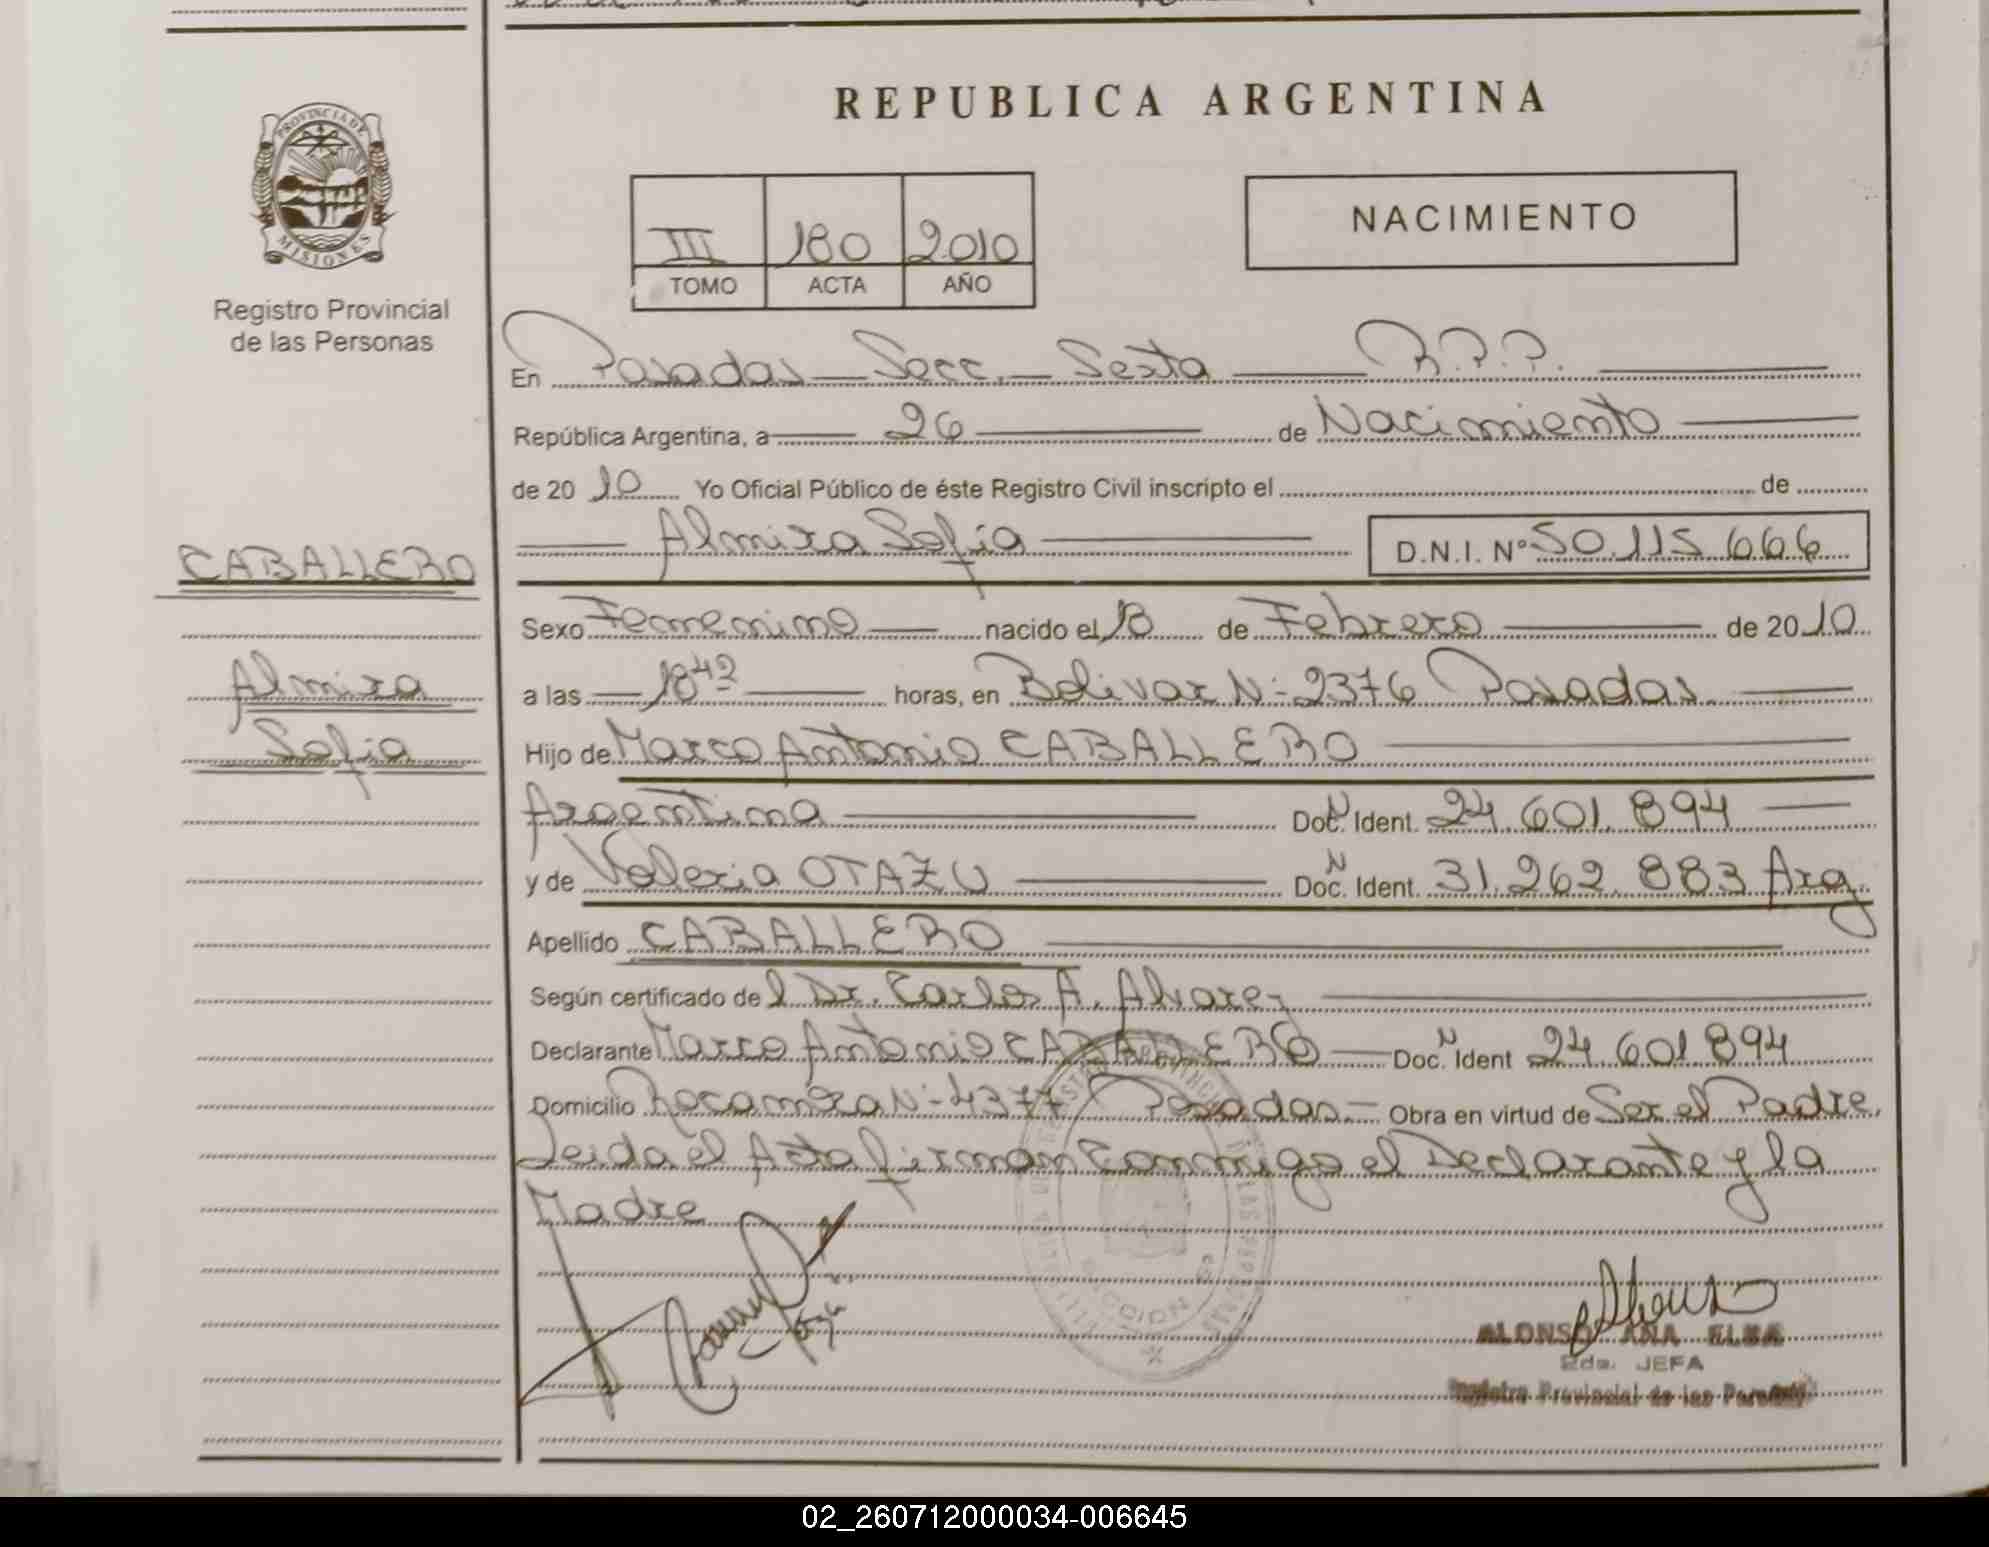 REPUBLICA ARGENTINA
PROVINCIA DE
MISIONES
Registro Provincial
de las Personas
III 180 2010
TOMO ACTA AÑO
NACIMIENTO
En Posadas - Secc. - Sexta R.P.P.
República Argentina, a 26 de Nacimiento
de 2010 Yo Oficial Público de éste Registro Civil inscripto el de
Almira Sofia D.N.I. Nº 50.115.666
CABALLERO
Almira
Sofia
Sexo Femenino nacido el 18 de Febrero de 2010
a las 18 42 horas, en Bolivar N- 2376 Posadas
Hijo de Marco Antonio CABALLERO
Argentino Doc. N Ident. 24.601.894
y de Valeria OTAZU Doc. N Ident. 31.262.883 Arg.
Apellido CABALLERO
Según certificado de l Dr. Carlos A. Alvarez
Declarante Marco Antonio CABALLERO Doc. N Ident 24.601.894
Domicilio Rocamora N- 4377 Posadas.- Obra en virtud de Ser el Padre.
Leida el Acta firman conmigo el Declarante y la
Madre
ALONSO ANA ELSA
2da. JEFA
Registro Provincial de las Personas
02_260712000034-006645